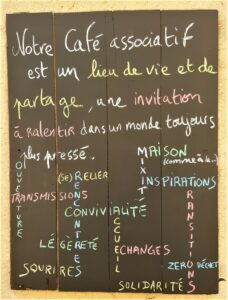 Notre Café associatif
est un lieu de vie et de
partage, une invitation
à ralentir dans un monde toujours
plus pressé.
MAISON
(comme à la...)
OUVERTURE
(SE) RELIER
MIXITÉ
INSPIRATIONS
TRANSMISSIONS
RENCONTRES
TRANSITIONS
CONVIVIALITÉ
ACCUEIL
LÉGÈRETÉ
ECHANGES
SOURIRES
ZERO DÉCHET
SOLIDARITÉS